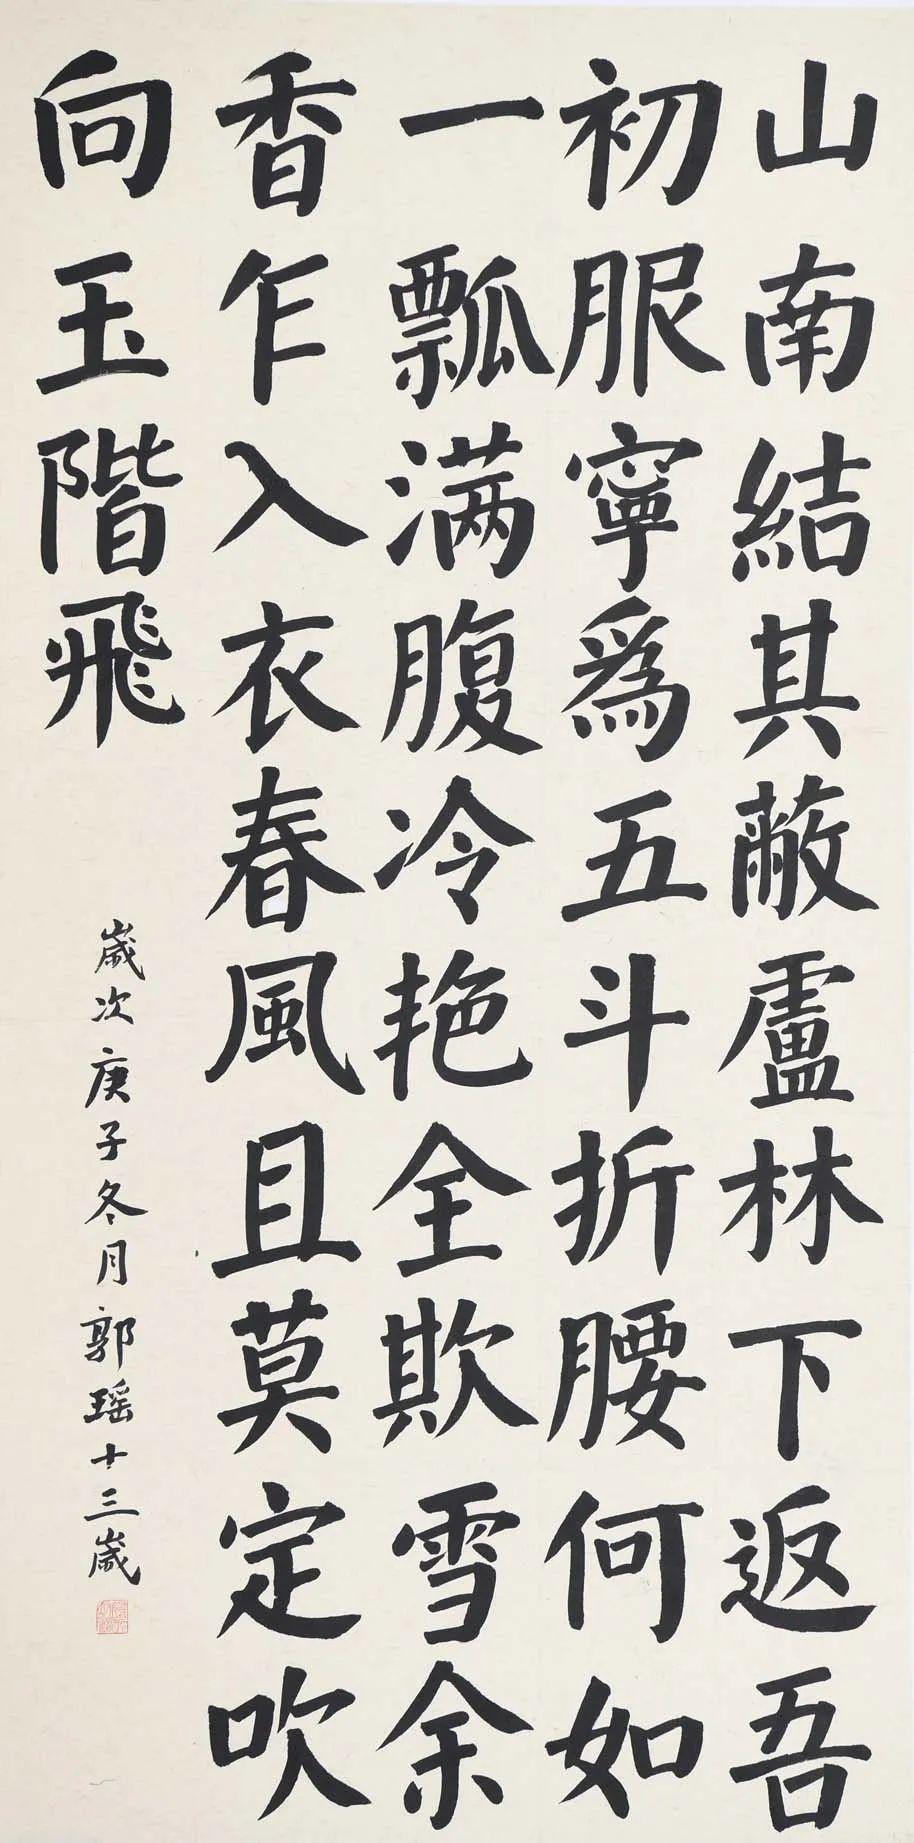 山南結其蔽盧林下返吾
初服寧爲五斗折腰何如
一瓢满腹冷艳全欺雪余
香乍入衣春風且莫定吹
向玉階飛
歲次庚子冬月郭瑶十三歲